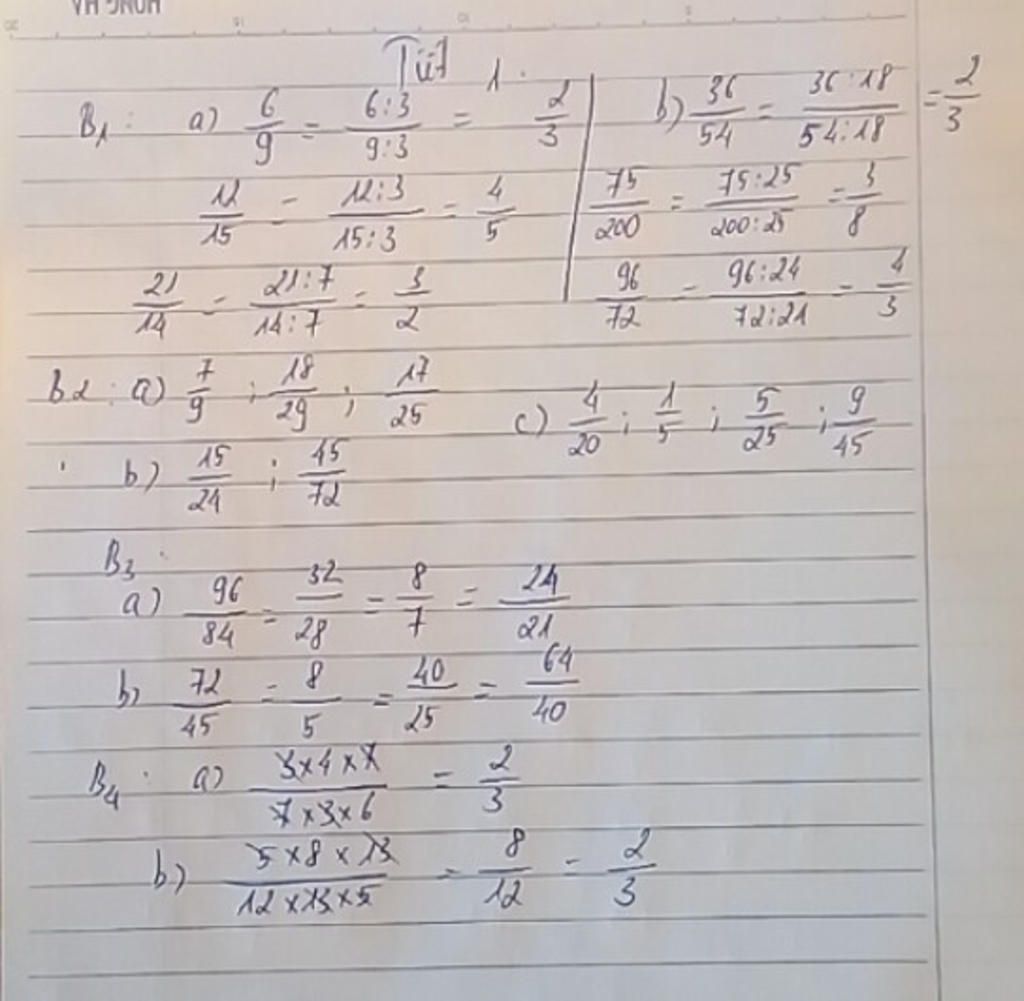 HONG HA
20 15 10 5
Tiết 1.
B1: a) 6/9 = 6:3/9:3 = 2/3
12/15 = 12:3/15:3 = 4/5
21/14 = 21:7/14:7 = 3/2
b) 36/54 = 36:18/54:18 = 2/3
75/200 = 75:25/200:25 = 3/8
96/72 = 96:24/72:24 = 4/3
B2: a) 7/9 ; 18/29 ; 17/25
b) 15/24 ; 45/72
c) 4/20 ; 1/5 ; 5/25 ; 9/45
B3:
a) 96/84 = 32/28 = 8/7 = 24/21
b) 72/45 = 8/5 = 40/25 = 64/40
B4: a) 3x4x7/7x3x6 = 2/3
b) 5x8x13/12x13x5 = 8/12 = 2/3